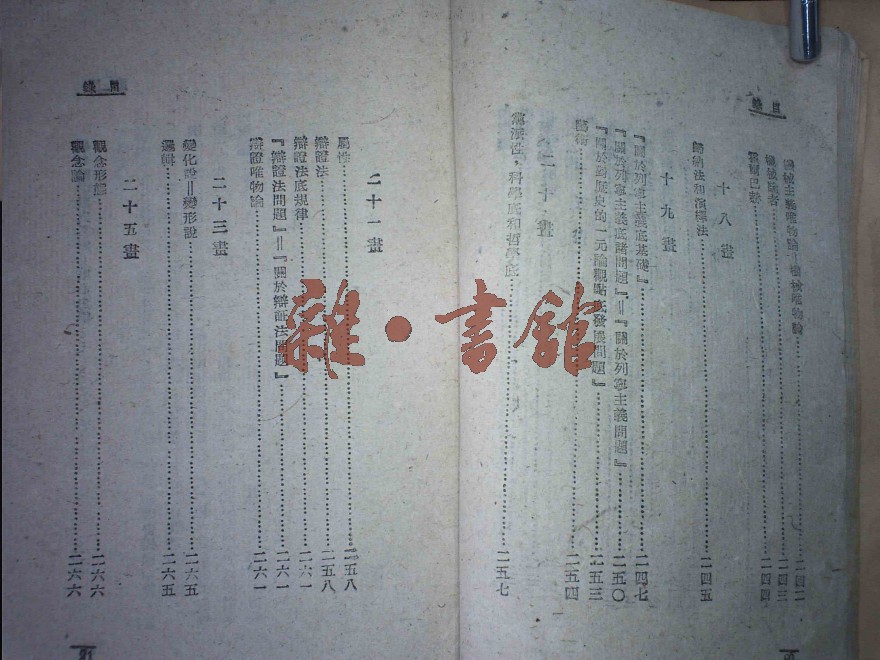 目錄
機械主義唯物論＝機械唯物論……二四二
機械論者……二四三
機關巴赫……二四四
十八畫
歸納法和演繹法……二四五
十九畫
『關於列寧主義底基礎』……二四七
『關於列寧主義底諸問題』＝『關於列寧主義問題』……二五〇
『關於對歷史的一元論觀點底發展問題』……二五三
藝術……二五四
二十畫
黨派性，科學底和哲學底……二五七
目錄
二十一畫
屬性……二五八
辯證法……二五八
辯證法底規律……二六一
『辯證法問題』＝『關於辯證法問題』……二六一
辯證唯物論……二六一
二十三畫
變化說＝變形說……二六五
邏輯……二六五
二十五畫
觀念形態……二六六
觀念論……二六六
雜·書館